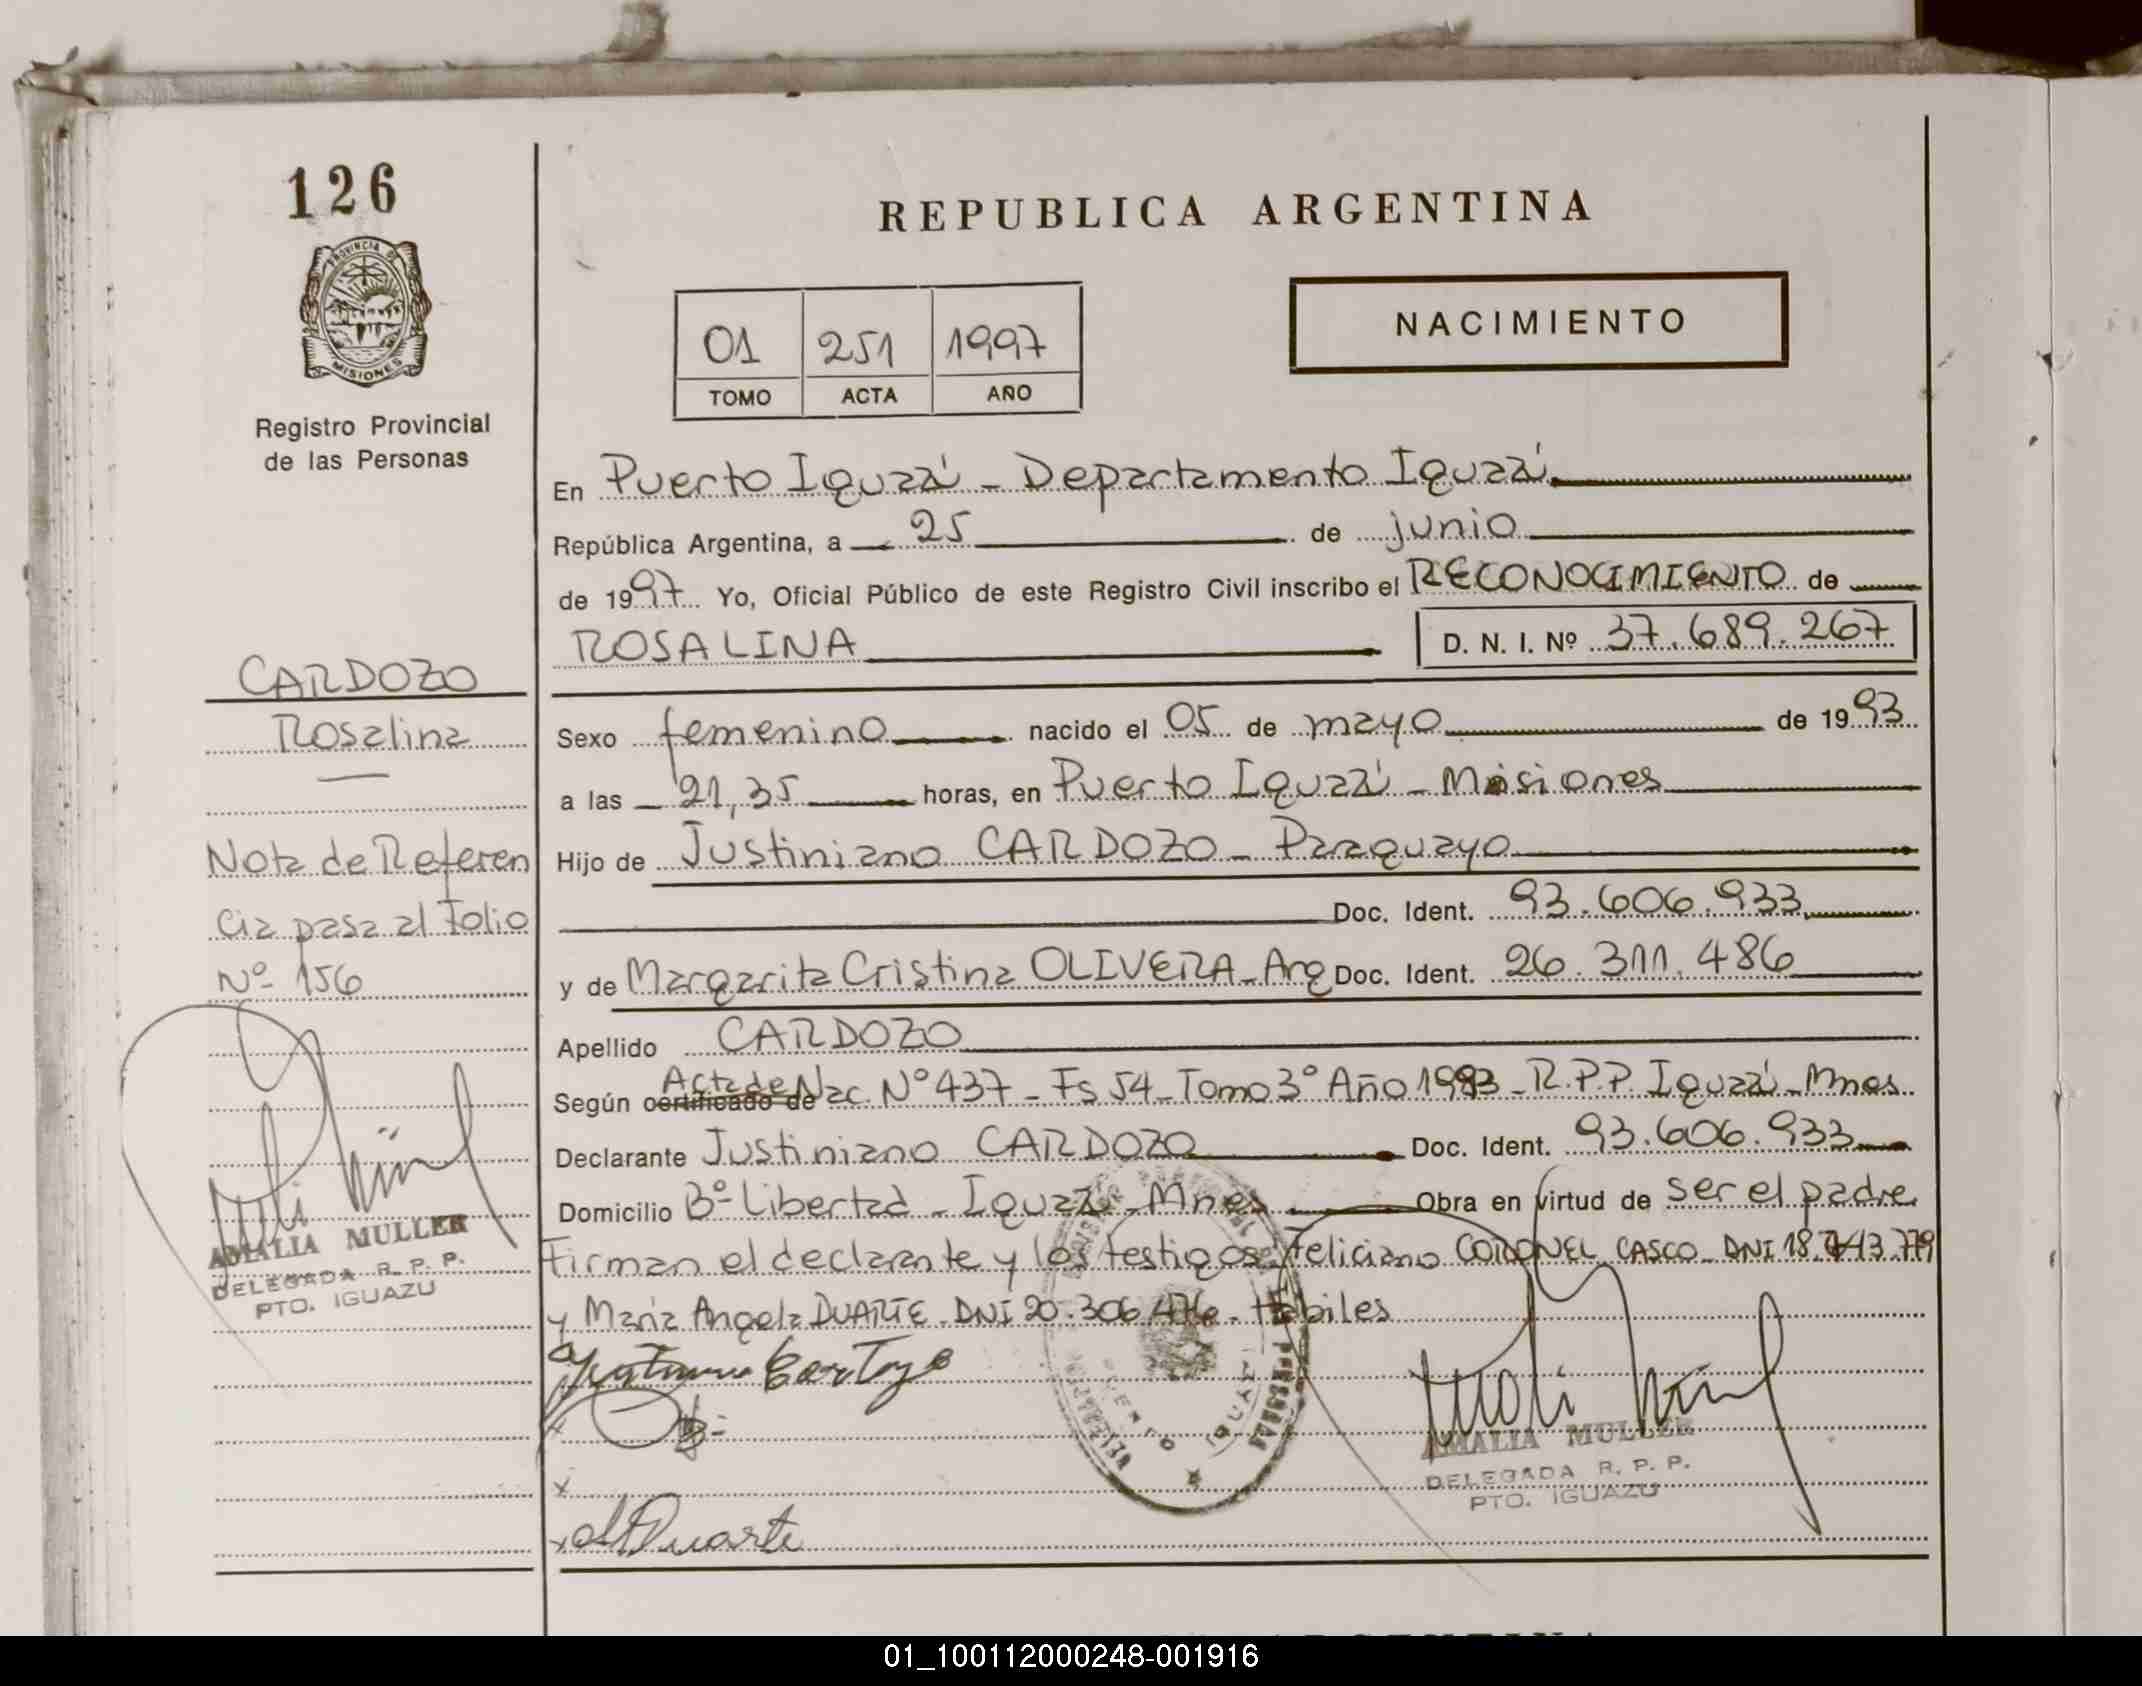 126
PROVINCIA DE
MISIONES
Registro Provincial
de las Personas
CARDOZO
Rosalina
Nota de Referen
cia pasa al Folio
Nº 156
AMALIA MULLER
DELEGADA R. P. P.
PTO. IGUAZU
REPUBLICA ARGENTINA
01 251 1997
TOMO ACTA AÑO
NACIMIENTO
En Puerto Iguazú - Departamento Iguazú
República Argentina, a 25 de junio
de 1997 Yo, Oficial Público de este Registro Civil inscribo el RECONOCIMIENTO de
ROSALINA D. N. I. Nº 37.689.267
Sexo femenino nacido el 05 de mayo de 1993
a las 21,35 horas, en Puerto Iguazú - Misiones
Hijo de Justiniano CARDOZO - Paraguayo
Doc. Ident. 93.606.933
y de Margarita Cristina OLIVERA - Arg Doc. Ident. 26.311.486
Apellido CARDOZO
Según certificado de Acta de Nac. Nº 437 - Fs 54 - Tomo 3º Año 1993 - R.P.P. Iguazú - Mnes.
Declarante Justiniano CARDOZO Doc. Ident. 93.606.933
Domicilio Bº Libertad - Iguazú - Mnes Obra en virtud de ser el padre
Firman el declarante y los testigos Feliciano CORONEL CASCO - DNI
y Maria Angela DUARTE - DNI 20.306.476 - Habiles
PUERTO IGUAZU
Duarte
AMALIA MULLER
DELEGADA R. P. P.
PTO. IGUAZU
01_100112000248-001916